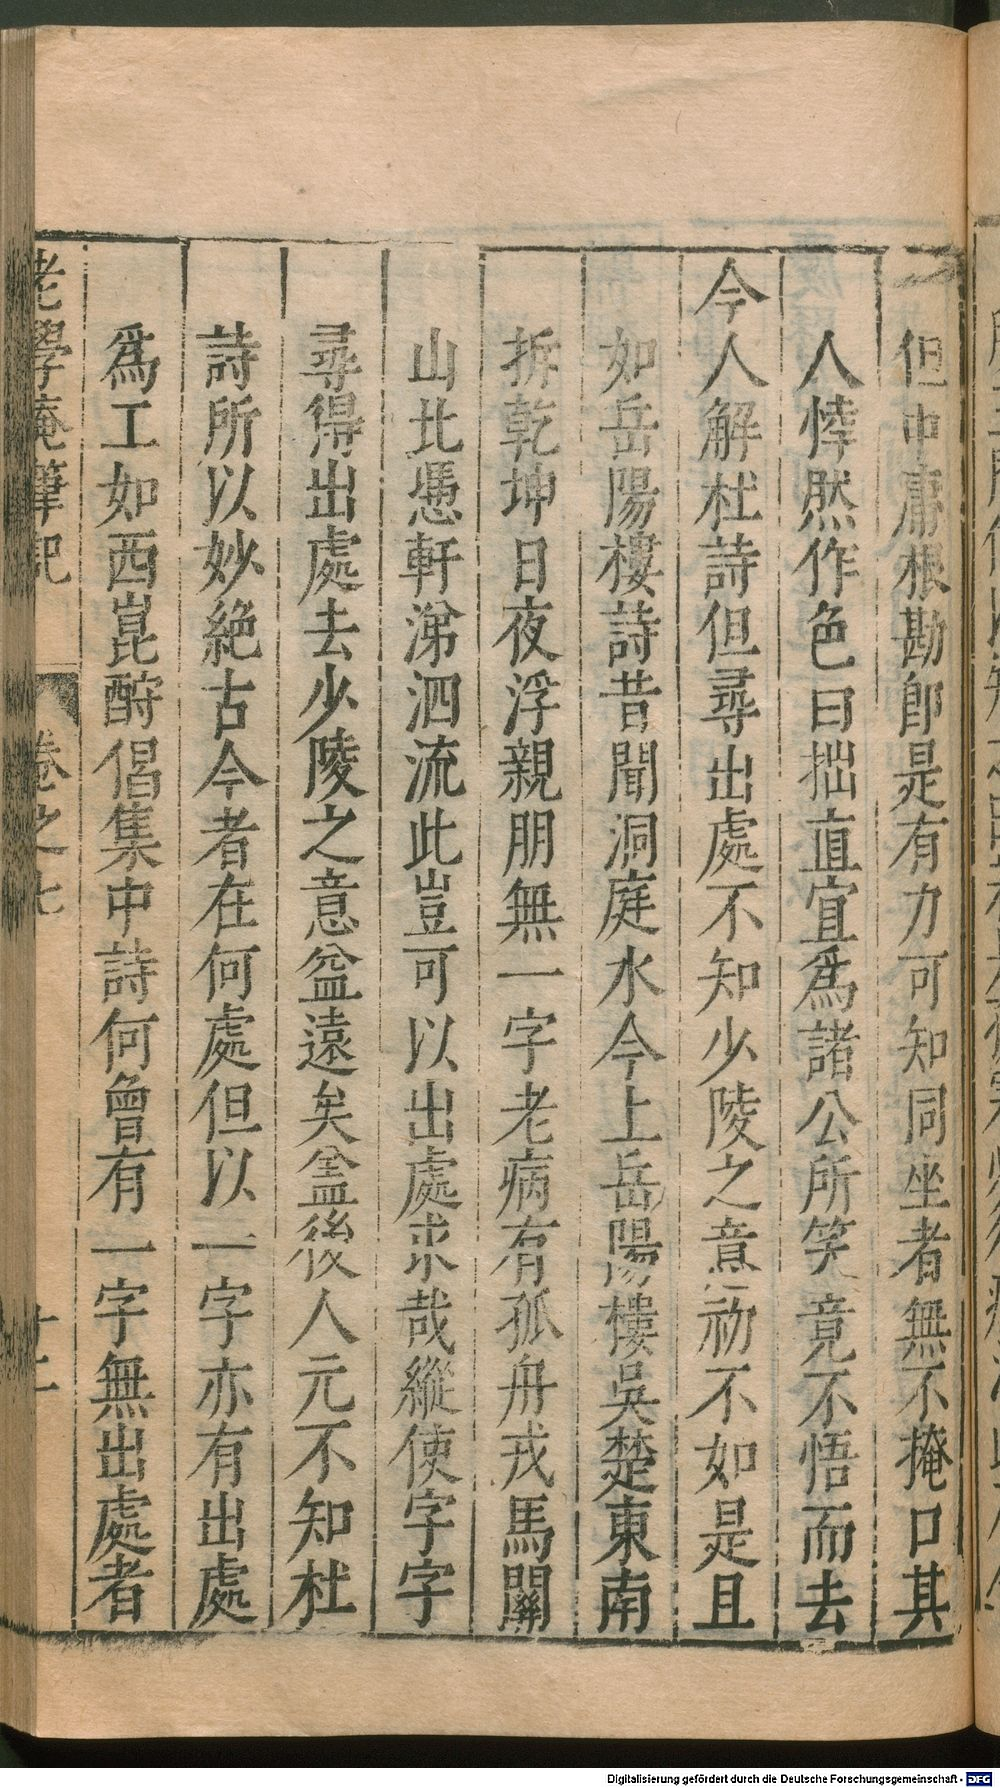 但中庸根勘郎是有力可知同坐者無不掩口其
人悻然作色曰拙直宜爲諸公所笑竟不悟而去
今人解杜詩但尋出處不知少陵之意初不如是且
如岳陽樓詩昔聞洞庭水今上岳陽樓吳楚東南
拆乾坤日夜浮親朋無一字老病有孤舟戎馬關
山北憑軒涕泗流此豈可以出處求哉縱使字字
尋得出處去少陵之意益遠矣盖後人元不知杜
詩所以妙絶古今者在何處但以一字亦有出處
爲工如西崑酧倡集中詩何曾有一字無出處者
老學庵筆記 卷之七 十二
Digitalisierung gefördert durch die Deutsche Forschungsgemeinschaft - DFG